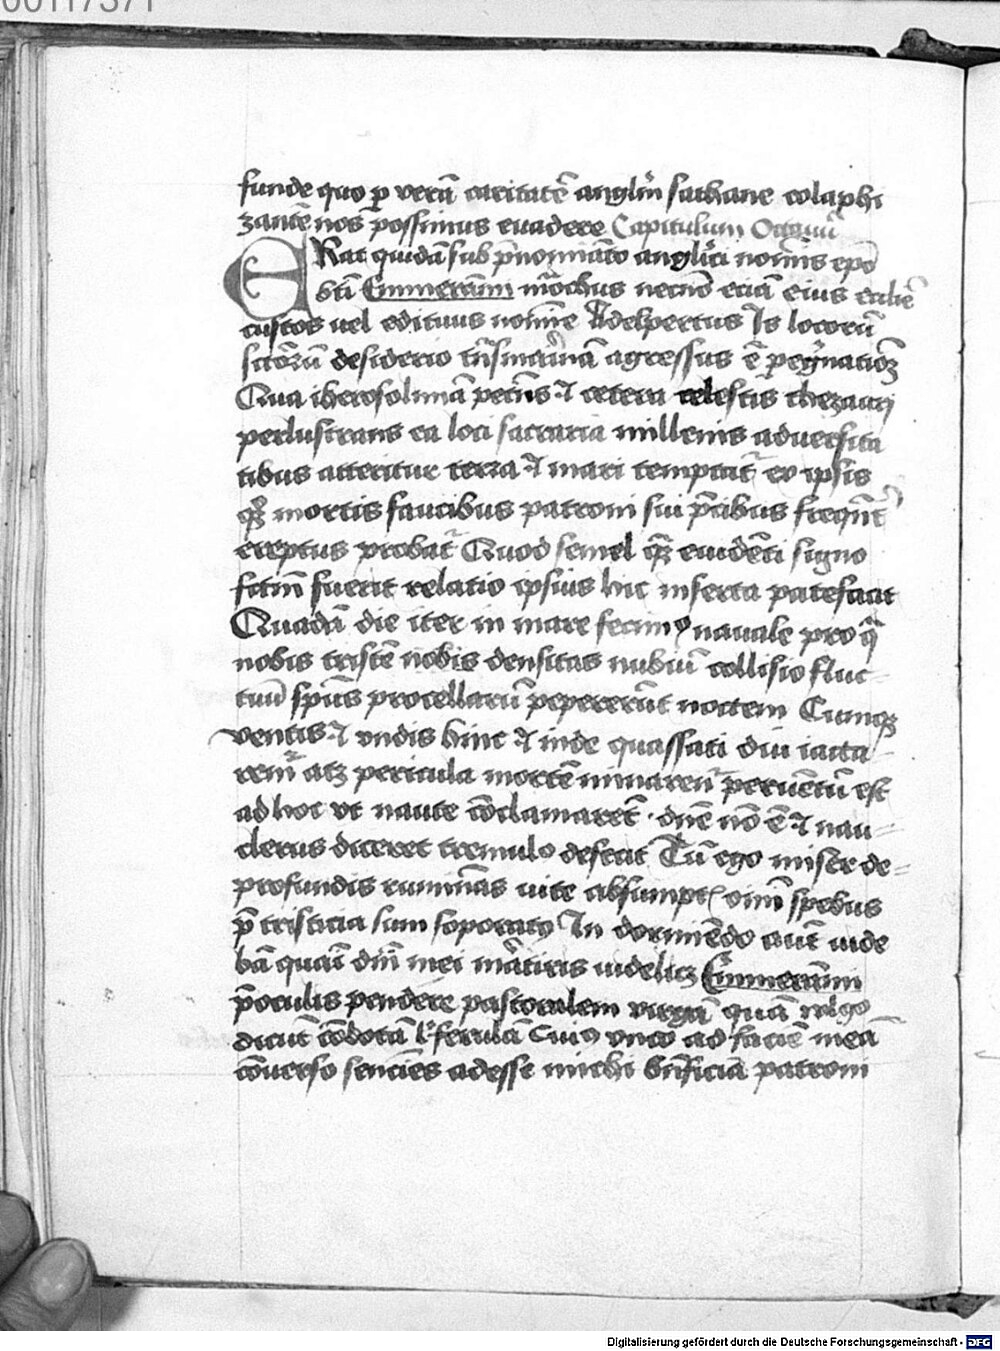 00117371
funde quo ꝑ verā caritatē anglm̄ sathane colaphi
zantē nos possimus euadere Capitulum Octauū
ERat quidā sub p̄nominato anglici nom̄is epō
bti Emmerāmm mōchus necnō eciā eius ecclīe
custos uel edituus nomīe Adelpertus Is locorū
sctōrū desiderio tn̄smarinā agressus ē peg̓natiōꝫ
Qua iherosolimā petēs ⁊ cetera celestis thezauri
perlustrans ea loci sacraria millenis aduersita
tibus atteritur terra ⁊ mari temptat᷑ ex ipsis
qꝫ mortis faucibus patroni sui p̄cibus freqn̄t᷑
ereptus probat᷑ Quod semel qꝫ euidēti signo
fctm̄ fuerit relatio ipsius hic inserta patefaciat
Quadā die iter in mare fecimꝯ nauale pro qͣ
nobis tristē nobis densitas nubiū collisio fluc-
tuū spūs procellarū pepererūt noctem Cumqꝫ
ventis ⁊ vndis hinc ⁊ inde quassati diu iacta-
rem᷑ atꝫ pericula mortē minaren᷑ peruētū est
ad hoc vt naute cōclamarēt · dn̄e nō ē ⁊ nau-
clerus diceret tremulo desecat Tū ego miser de-
profundis ruminās uite absumpt oīm̄ spebus
p̄ tristicia sum soporatꝯ In dormiēdo autē uide
bā quasi dn̄i mei mr̄tiris uidelicꝫ Emmerāmm
p̄oculis pendere pastoralem virgā quā vulgo
dicūt cābotā l᷑ ferulā Cuiꝯ vnco ad faciē meā
cōuerso sencies adesse michi bn̄ficiā patroni
Digitalisierung gefördert durch die Deutsche Forschungsgemeinschaft - DFG